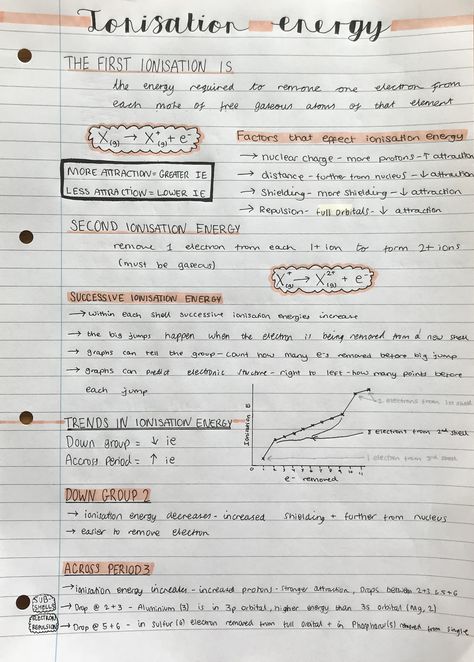 Ionisation energy
THE FIRST IONISATION IS
the energy required to remove one electron from
each mole of free gaseous atoms of that element
X(g) → X⁺(g) + e⁻
MORE ATTRACTION = GREATER IE
LESS ATTRACTION = LOWER IE
Factors that effect ionisation energy
→ nuclear charge - more protons - ↑ attraction
→ distance - further from nucleus - ↓ attraction
→ Shielding - more shielding - ↓ attraction
→ Repulsion - full orbitals - ↓ attraction
SECOND IONISATION ENERGY
remove 1 electron from each 1+ ion to form 2+ ions
(must be gaseous)
X⁺(g) → X²⁺(g) + e⁻
SUCCESSIVE IONISATION ENERGY
→ Within each shell successive ionisation energies increase
→ the big jumps happen when the electron is being removed from a new shell
→ graphs can tell the group - count how many e's removed before big jump
→ graphs can predict electronic structure - right to left - how many points before
each jump
TRENDS IN IONISATION ENERGY
Down group = ↓ ie
Accross period = ↑ ie
Ionisation E
2 electrons from 1st shell
8 electrons from 2nd shell
1 electron from 3rd shell
1 2 3 4 5 6 7 8 9 10 11
e- removed
DOWN GROUP 2
→ ionisation energy decreases - increased shielding + further from nucleus
→ easier to remove electron
ACROSS PERIOD 3
→ Ionisation energy increases - increased protons - stronger attraction, Drops between 2+3 & 5+6
SUB-
SHELLS
→ Drop @ 2+3 - Aluminium (3) is in 3p orbital, higher energy than 3s orbital (Mg, 2)
ELECTRON
REPULSION
→ Drop @ 5+6 - in sulfur (6) electron removed from full orbital + in Phosphorus(5) removed from single